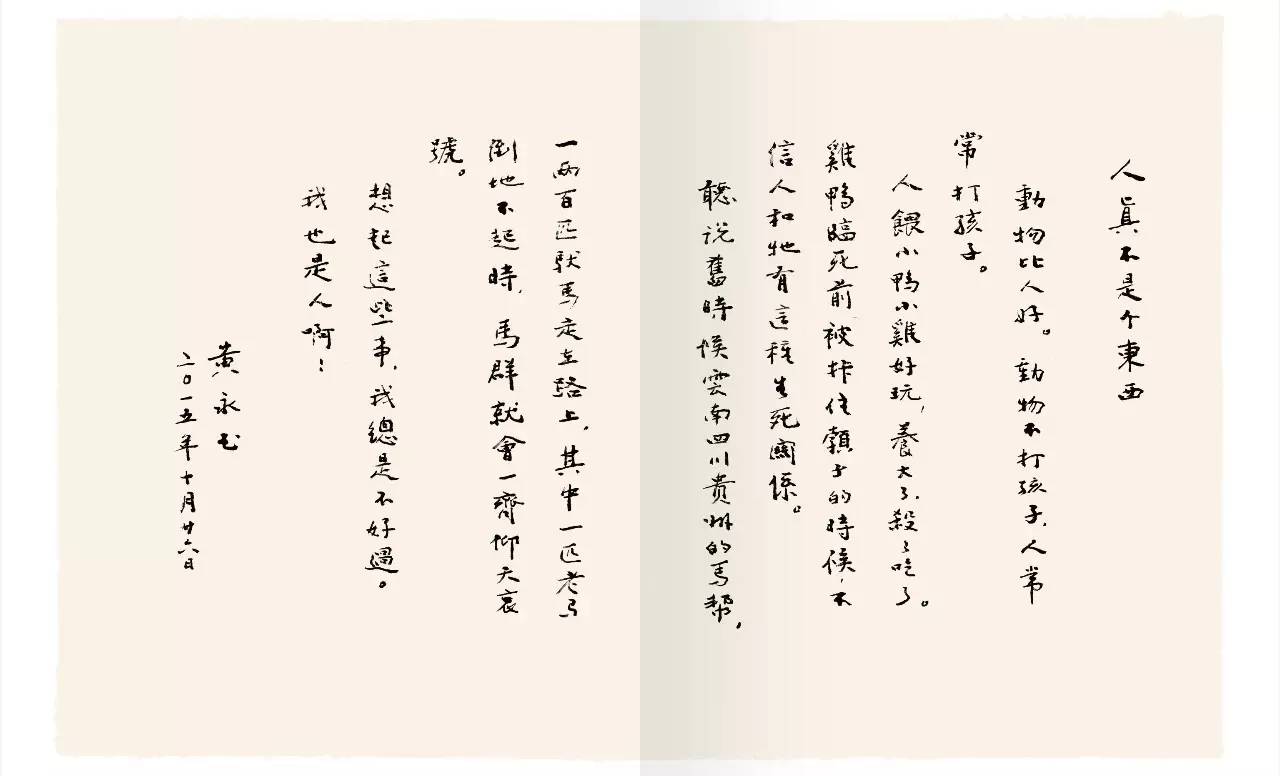 人真不是个東西
動物比人好。動物不打孩子，人常
常打孩子。
人餵小鴨小雞好玩，養大了，殺了吃了。
雞鴨臨死前被拤住頸子的時候，不
信人和牠有這種生死關係。
聽说舊時候雲南四川貴州的馬幫，
一兩百匹馱馬走在路上，其中一匹老馬
倒地不起時，馬群就會一齊仰天哀
號。
想起這些事，我總是不好過。
我也是人啊！
黄永玉
二〇一五年十月廿六日